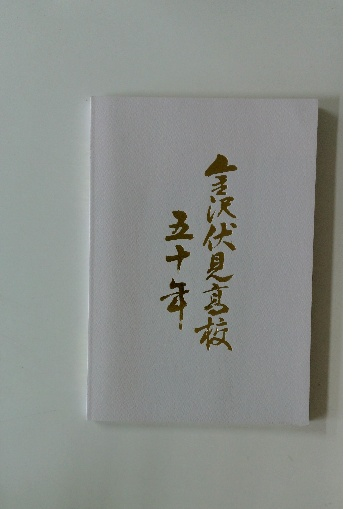 金沢伏見高校
五十年